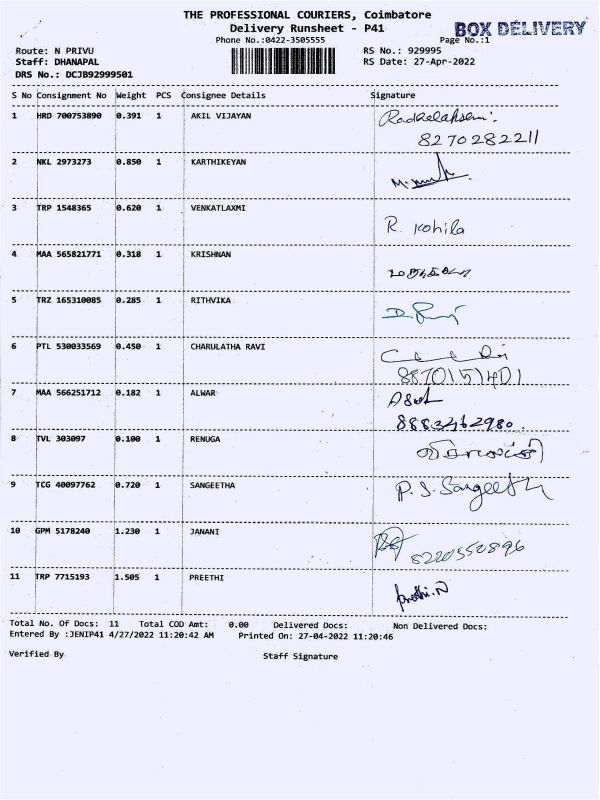 THE PROFESSIONAL COURIERS, Coimbatore
Delivery Runsheet - P41
BOX DELIVERY
Phone No.:0422-3505555
Page No.:1
Route: N PRIVU
RS No.: 929995
Staff: DHANAPAL
RS Date: 27-Apr-2022
DRS No.: DCJB92999501
S No Consignment No Weight PCS Consignee Details Signature
1 HRD 700753890 0.391 1 AKIL VIJAYAN
8270282211
2 NKL 2973273 0.850 1 KARTHIKEYAN
3 TRP 1548365 0.620 1 VENKATLAXMI
R. Kohila
4 MAA 565821771 0.318 1 KRISHNAN
5 TRZ 165310085 0.285 1 RITHVIKA
6 PTL 530033569 0.450 1 CHARULATHA RAVI
8870151401
7 MAA 566251712 0.182 1 ALWAR
8883462980
8 TVL 303097 0.100 1 RENUGA
9 TCG 40097762 0.720 1 SANGEETHA P. S. Sangeeth
10 GPM 5178240 1.230 1 JANANI
8220552896
11 TRP 7715193 1.505 1 PREETHI
Preethi.N
Total No. Of Docs: 11 Total COD Amt: 0.00 Delivered Docs: Non Delivered Docs:
Entered By :JENIP41 4/27/2022 11:20:42 AM Printed On: 27-04-2022 11:20:46
Verified By Staff Signature